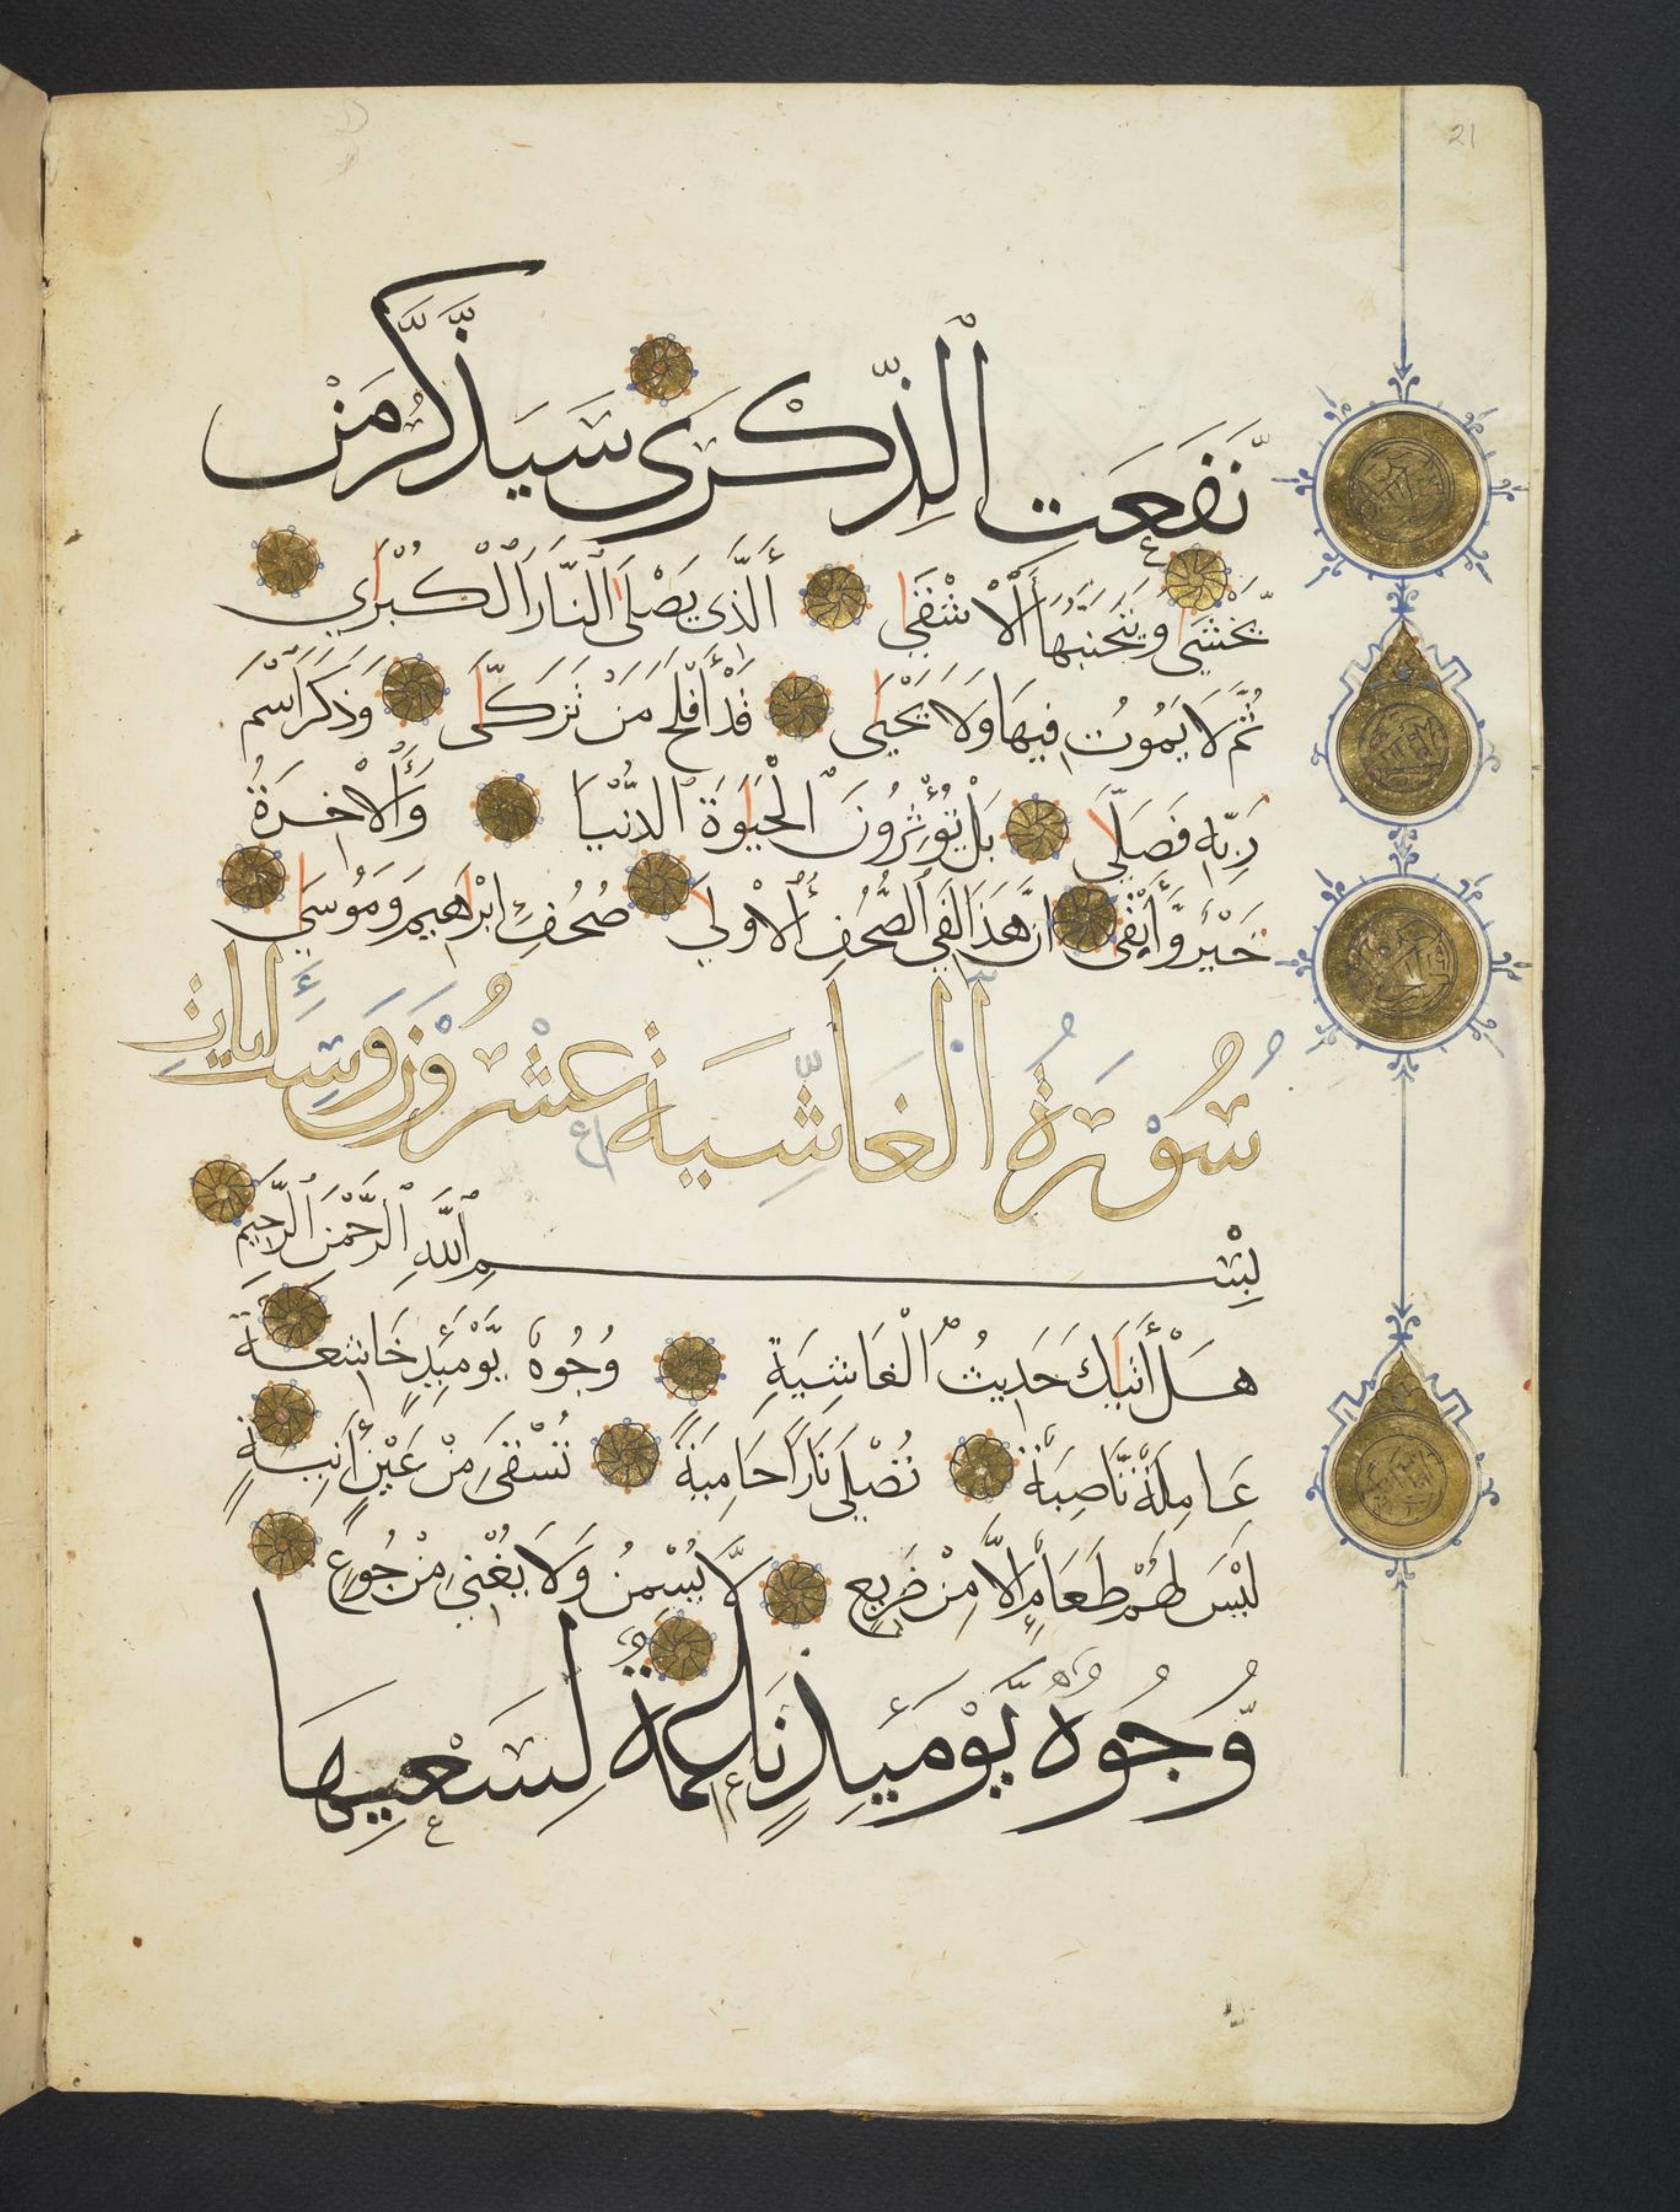 21
نَّفَعَتِ ٱلذِّكْرَى سَيَذَّكَّرُ مَنْ
يَّخْشَى وَيَتَجَنَّبُهَا ٱلْأَشْقَى ٱلَّذِى يَصْلَى ٱلنَّارَ ٱلْكُبْرَى
ثُمَّ لَا يَمُوتُ فِيهَا وَلَا يَحْيَى قَدْ أَفْلَحَ مَنْ تَزَكَّى وَذَكَرَ ٱسْمَ
رَبِّهِ فَصَلَّى بَلْ تُؤْثِرُونَ ٱلْحَيَوةَ ٱلدُّنْيَا وَٱلْأٰخِرَةُ
خَيْرٌ وَّأَبْقَى اِنَّ هَذَا لَفِي ٱلصُّحُفِ ٱلْأُوْلَى صُحُفِ اِبْرَاهِيمَ وَمُوسَى
سُوْرَةُ ٱلْغَاشِيَةِ عِشْرُوْنَ وَسِتُّ اٰيَاتٍ
بِسْمِ ٱللَّهِ ٱلرَّحْمٰنِ ٱلرَّحِيمِ
هَلْ أَتَيكَ حَدِيثُ ٱلْغَاشِيَةِ وُجُوهٌ يَّوْمَئِذٍ خَاشِعَةٌ
عَامِلَةٌ نَّاصِبَةٌ تُصْلَى نَارًا حَامِيَةً تُسْقَى مِنْ عَيْنٍ أٰنِيَةٍ
لَيْسَ لَهُمْ طَعَامٌ اِلَّا مِنْ ضَرِيعٍ لَّا يُسْمِنُ وَلَا يُغْنِي مِنْ جُوعٍ
وُّجُوهٌ يَّوْمَئِذٍ نَاعِمَةٌ لِسَعْيِهَا